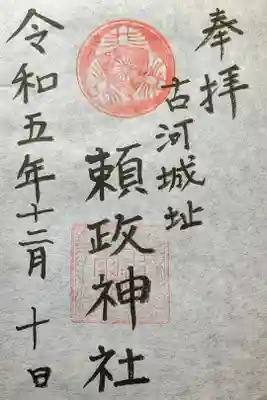 奉拝
古河城址
頼政神社
令和五年十二月十日